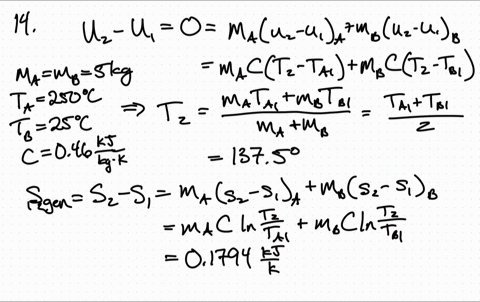 14. U₂-U₁=0=m_A(u₂-u₁)_A+m_B(u₂-u₁)_B
m_A=m_B=5kg
=m_AC(T₂-T_A1)+m_BC(T₂-T_B1)
T_A=250°C
T_B=25°C
C=0.46 kJ/kg·K
⇒ T₂ = (m_AT_A1+m_BT_B1)/(m_A+m_B) = (T_A1+T_B1)/2
=137.5°
S_gen=S₂-S₁=m_A(s₂-s₁)_A+m_B(s₂-s₁)_B
=m_AC ln T₂/T_A1 + m_BC ln T₂/T_B1
=0.1794 kJ/K